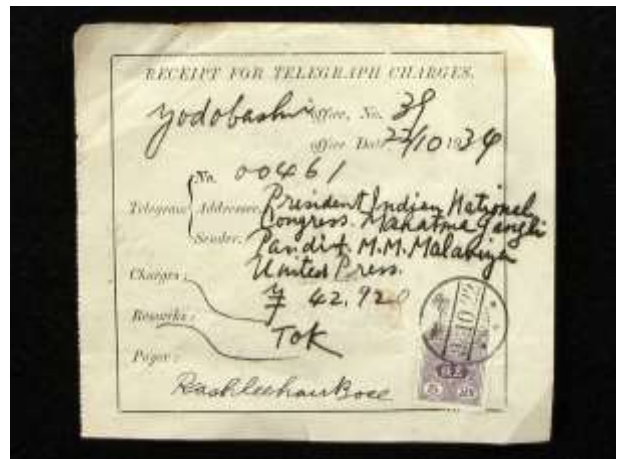 RECEIPT FOR TELEGRAPH CHARGES.
Yodobashi office, No. 39
office Date 22/10 1934
No. 00461
Telegram Addressee, President Indian National
Congress. Mahatma Gandhi
Sender, Pandit M.M. Malaviya
United Press.
Charges: ¥ 42.920
Remarks: Tok
Payer:
Rashbehari Bose
9.10.22